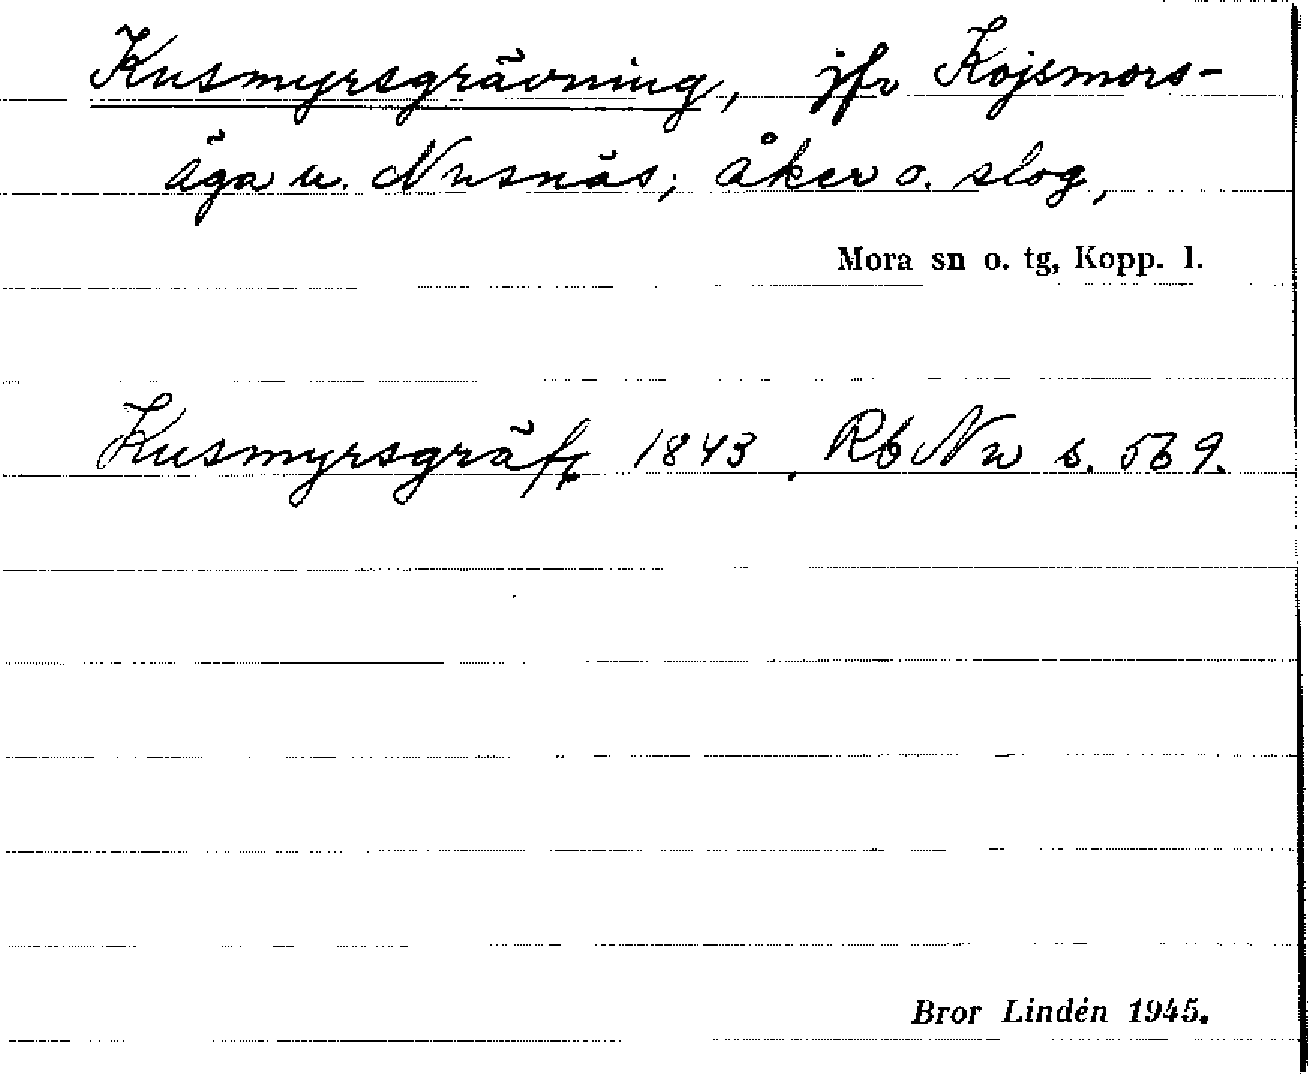 Kusmyrsgrävning, jfr Kojsmors-
äga u. Nusnäs; åker o. slog,
Mora sn o. tg, Kopp. l.
Kusmyrsgräft 1843. Rb Nu s. 569.
Bror Lindén 1945.